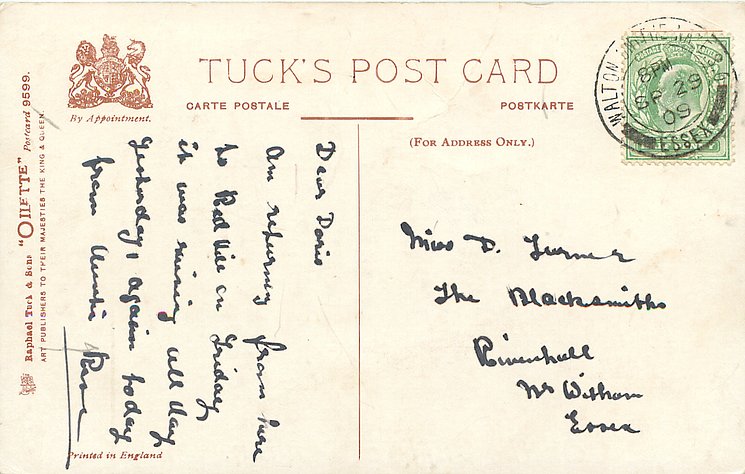 TUCK'S POST CARD
CARTE POSTALE
POSTKARTE
By Appointment.
(For Address Only.)
Raphael Tuck & Sons "OILETTE" Postcard 9599.
ART PUBLISHERS TO THEIR MAJESTIES THE KING & QUEEN.
WALTON ON THE NAZE S.O
8 PM
SP 29
09
ESSEX
Dear Doris
Am returning from here
to Red Hill on Friday
it was raining all day
Yesterday, again today
from Auntie
Miss D. Turner
The Blacksmiths
Rivenhall
Nr Witham
Essex
Printed in England